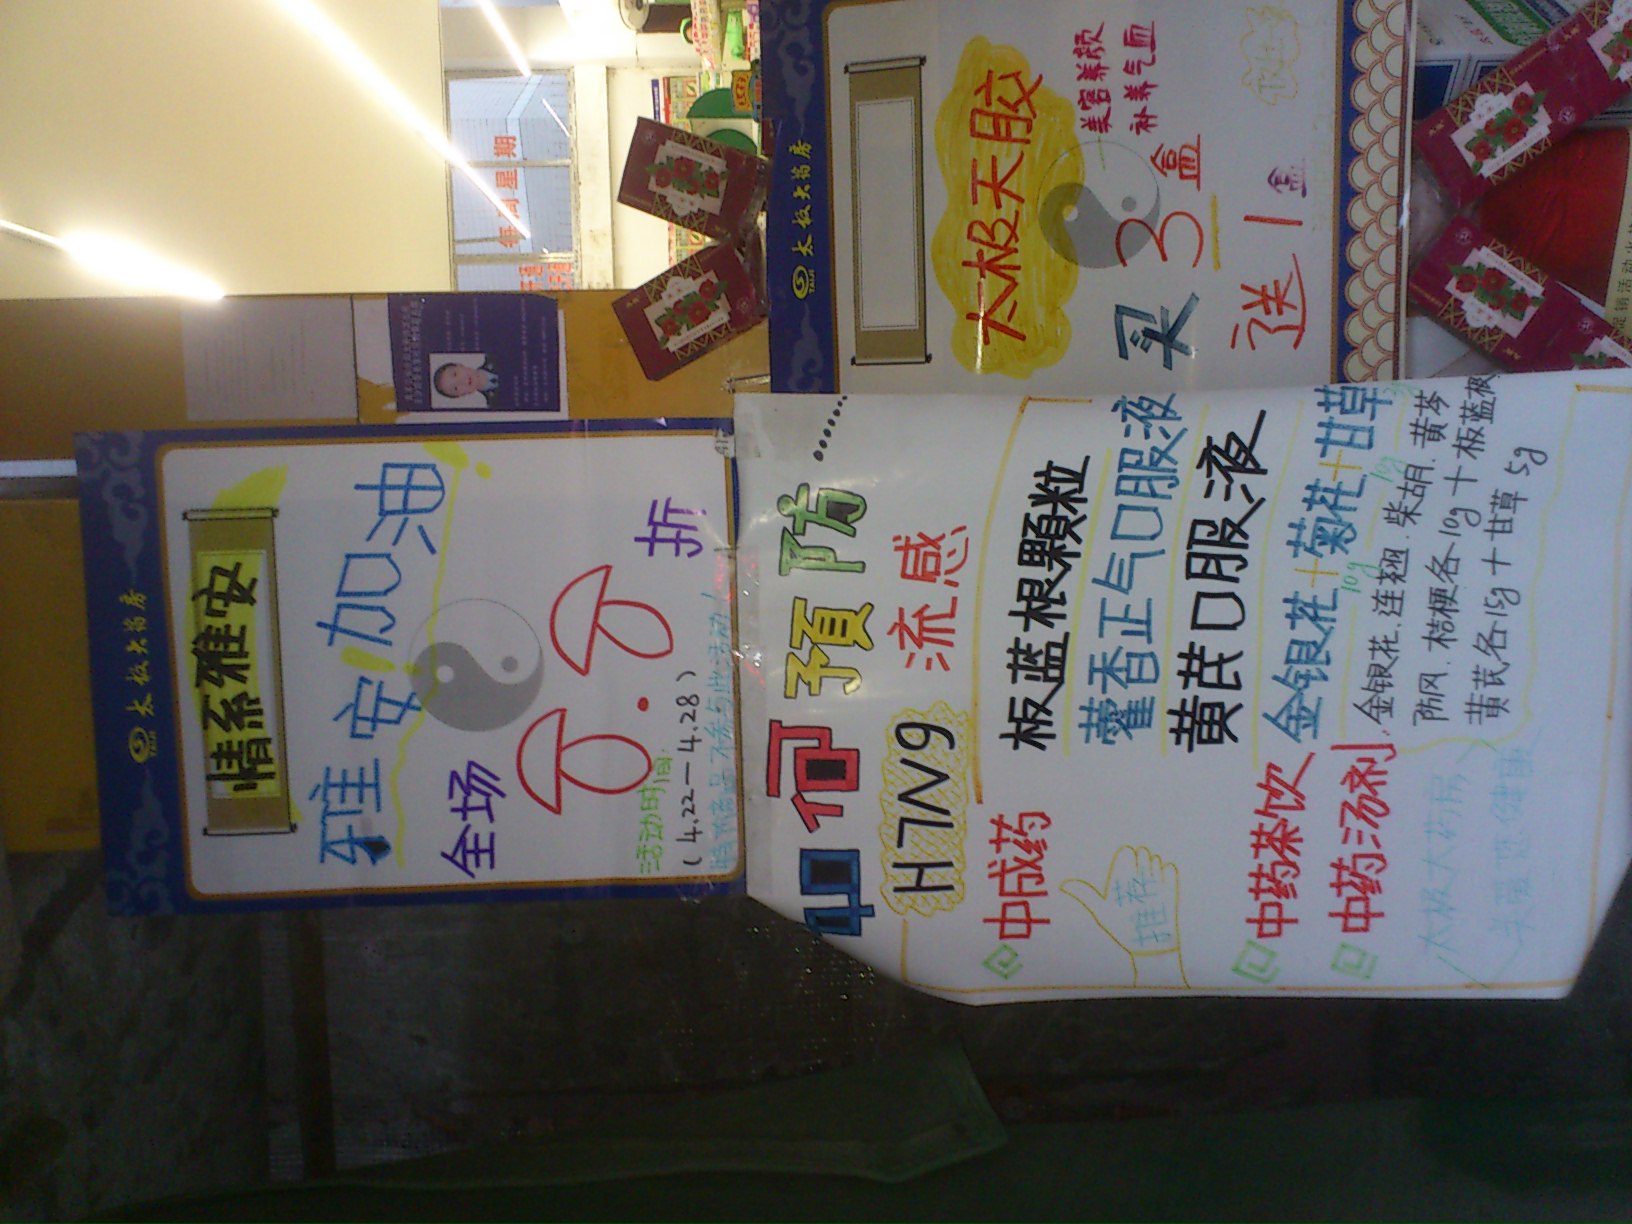 太极大药房
TAIJI
情系雅安
雅安加油
全场8.8折
活动时间:
(4.22—4.28)
不参与此活动!
如何預防……
H7N9流感
中成药
板蓝根顆粒
藿香正气口服液
黄芪口服液
推荐
中药茶饮
金银花+菊花+甘草
10g 10g
中药汤剂
金银花.连翘.柴胡.黄芩
防风.桔梗各10g+板蓝根
黄芪各15g+甘草5g
太极大药房
关爱您健康
太极大药房
TAIJI
太极天胶
美容养颜
补养气血
买3盒
送1盒
每周星期